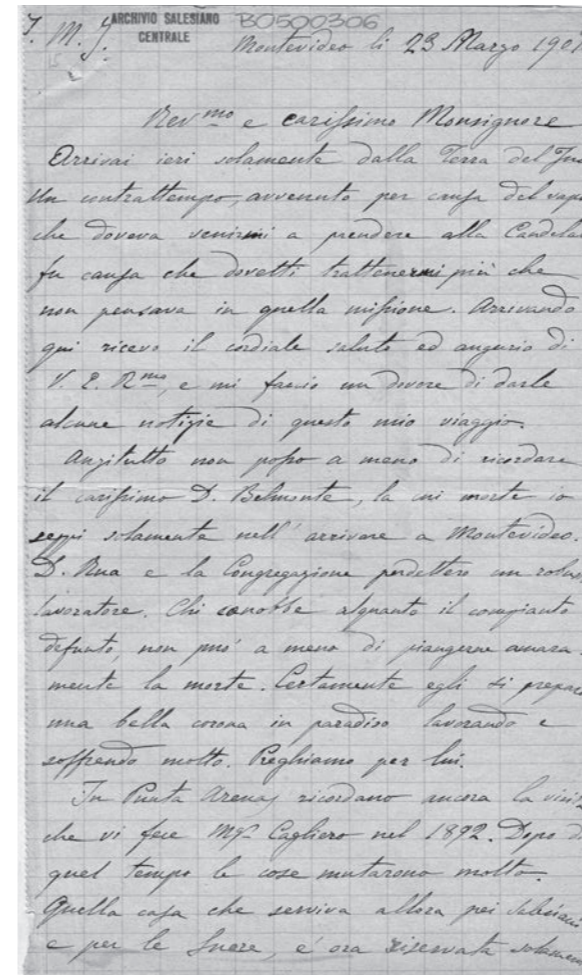 J. M. J.
ARCHIVIO SALESIANO
CENTRALE
B0500306
Montevideo li 23 Marzo 190
Rev.mo e carissimo Monsignore
Arrivai ieri solamente dalla Terra del Fuo
Un contrattempo, avvenuto per causa del vapo
che doveva venirmi a prendere alla Candela
fu causa che dovetti trattenermi più che
non pensava in quella missione. Arrivando
qui ricevo il cordiale saluto ed augurio di
V. E. R.ma, e mi faccio un dovere di darle
alcune notizie di questo mio viaggio.
Anzitutto non posso a meno di ricordare
il carissimo D. Belmonte, la cui morte io
seppi solamente nell'arrivare a Montevideo.
D. Rua e la Congregazione perdettero un robus
lavoratore. Chi conobbe alquanto il compianto
defunto, non può a meno di piangerne amara-
mente la morte. Certamente egli si preparò
una bella corona in paradiso lavorando e
soffrendo molto. Preghiamo per lui.
In Punta Arenas ricordano ancora la visit
che vi fece Mgr Cagliero nel 1892. Dopo di
quel tempo le cose mutarono molto.
Quella casa che serviva allora pei Salesiani
e per le Suore, é ora riservata solamen